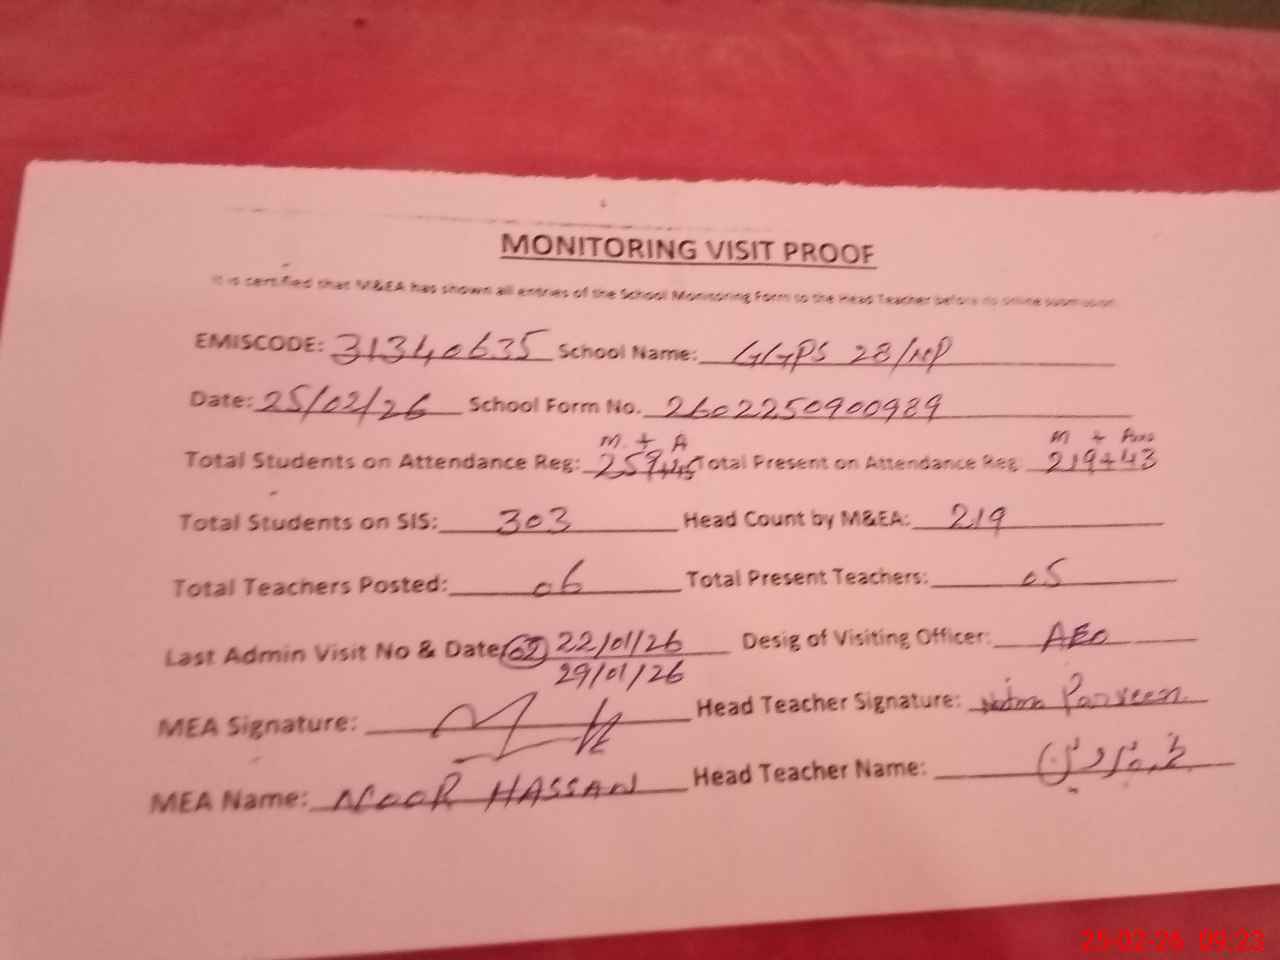 MONITORING VISIT PROOF
It is certified that M&EA has shown all entries of the School Monitoring Form to the Head Teacher before its online submission
EMISCODE: 31340635 School Name: GGPS 28/NP
Date: 25/02/26 School Form No. 2602250900989
M + A M + A
Total Students on Attendance Reg: 259+45 Total Present on Attendance Reg: 219+43
Total Students on SIS: 303 Head Count by M&EA: 219
Total Teachers Posted: 06 Total Present Teachers: 05
Last Admin Visit No & Date 02 22/01/26 Desig of Visiting Officer: AEO
29/01/26
MEA Signature: Head Teacher Signature: Parveen
MEA Name: NOOR HASSAN Head Teacher Name:
25-02-26 09:23